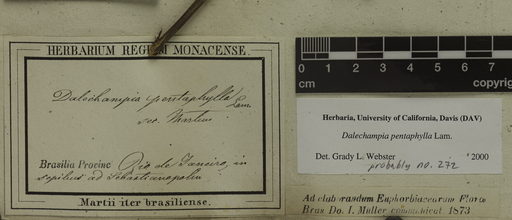 HERBARIUM REGIUM MONACENSE.
Dalechampia pentaphylla Lam.
sec. Martius
Brasilia Provinc Rio de Janeiro, in
sepibus ad Sebastianopolin
Martii iter brasiliense.
0 1 2 3 4
cm copyrig
Herbaria, University of California, Davis (DAV)
Dalechampia pentaphylla Lam.
Det. Grady L. Webster 2000
probably no. 272
Ad elaborandum Euphorbiacearum Florae
Bras Do. J. Müller communicat 1873